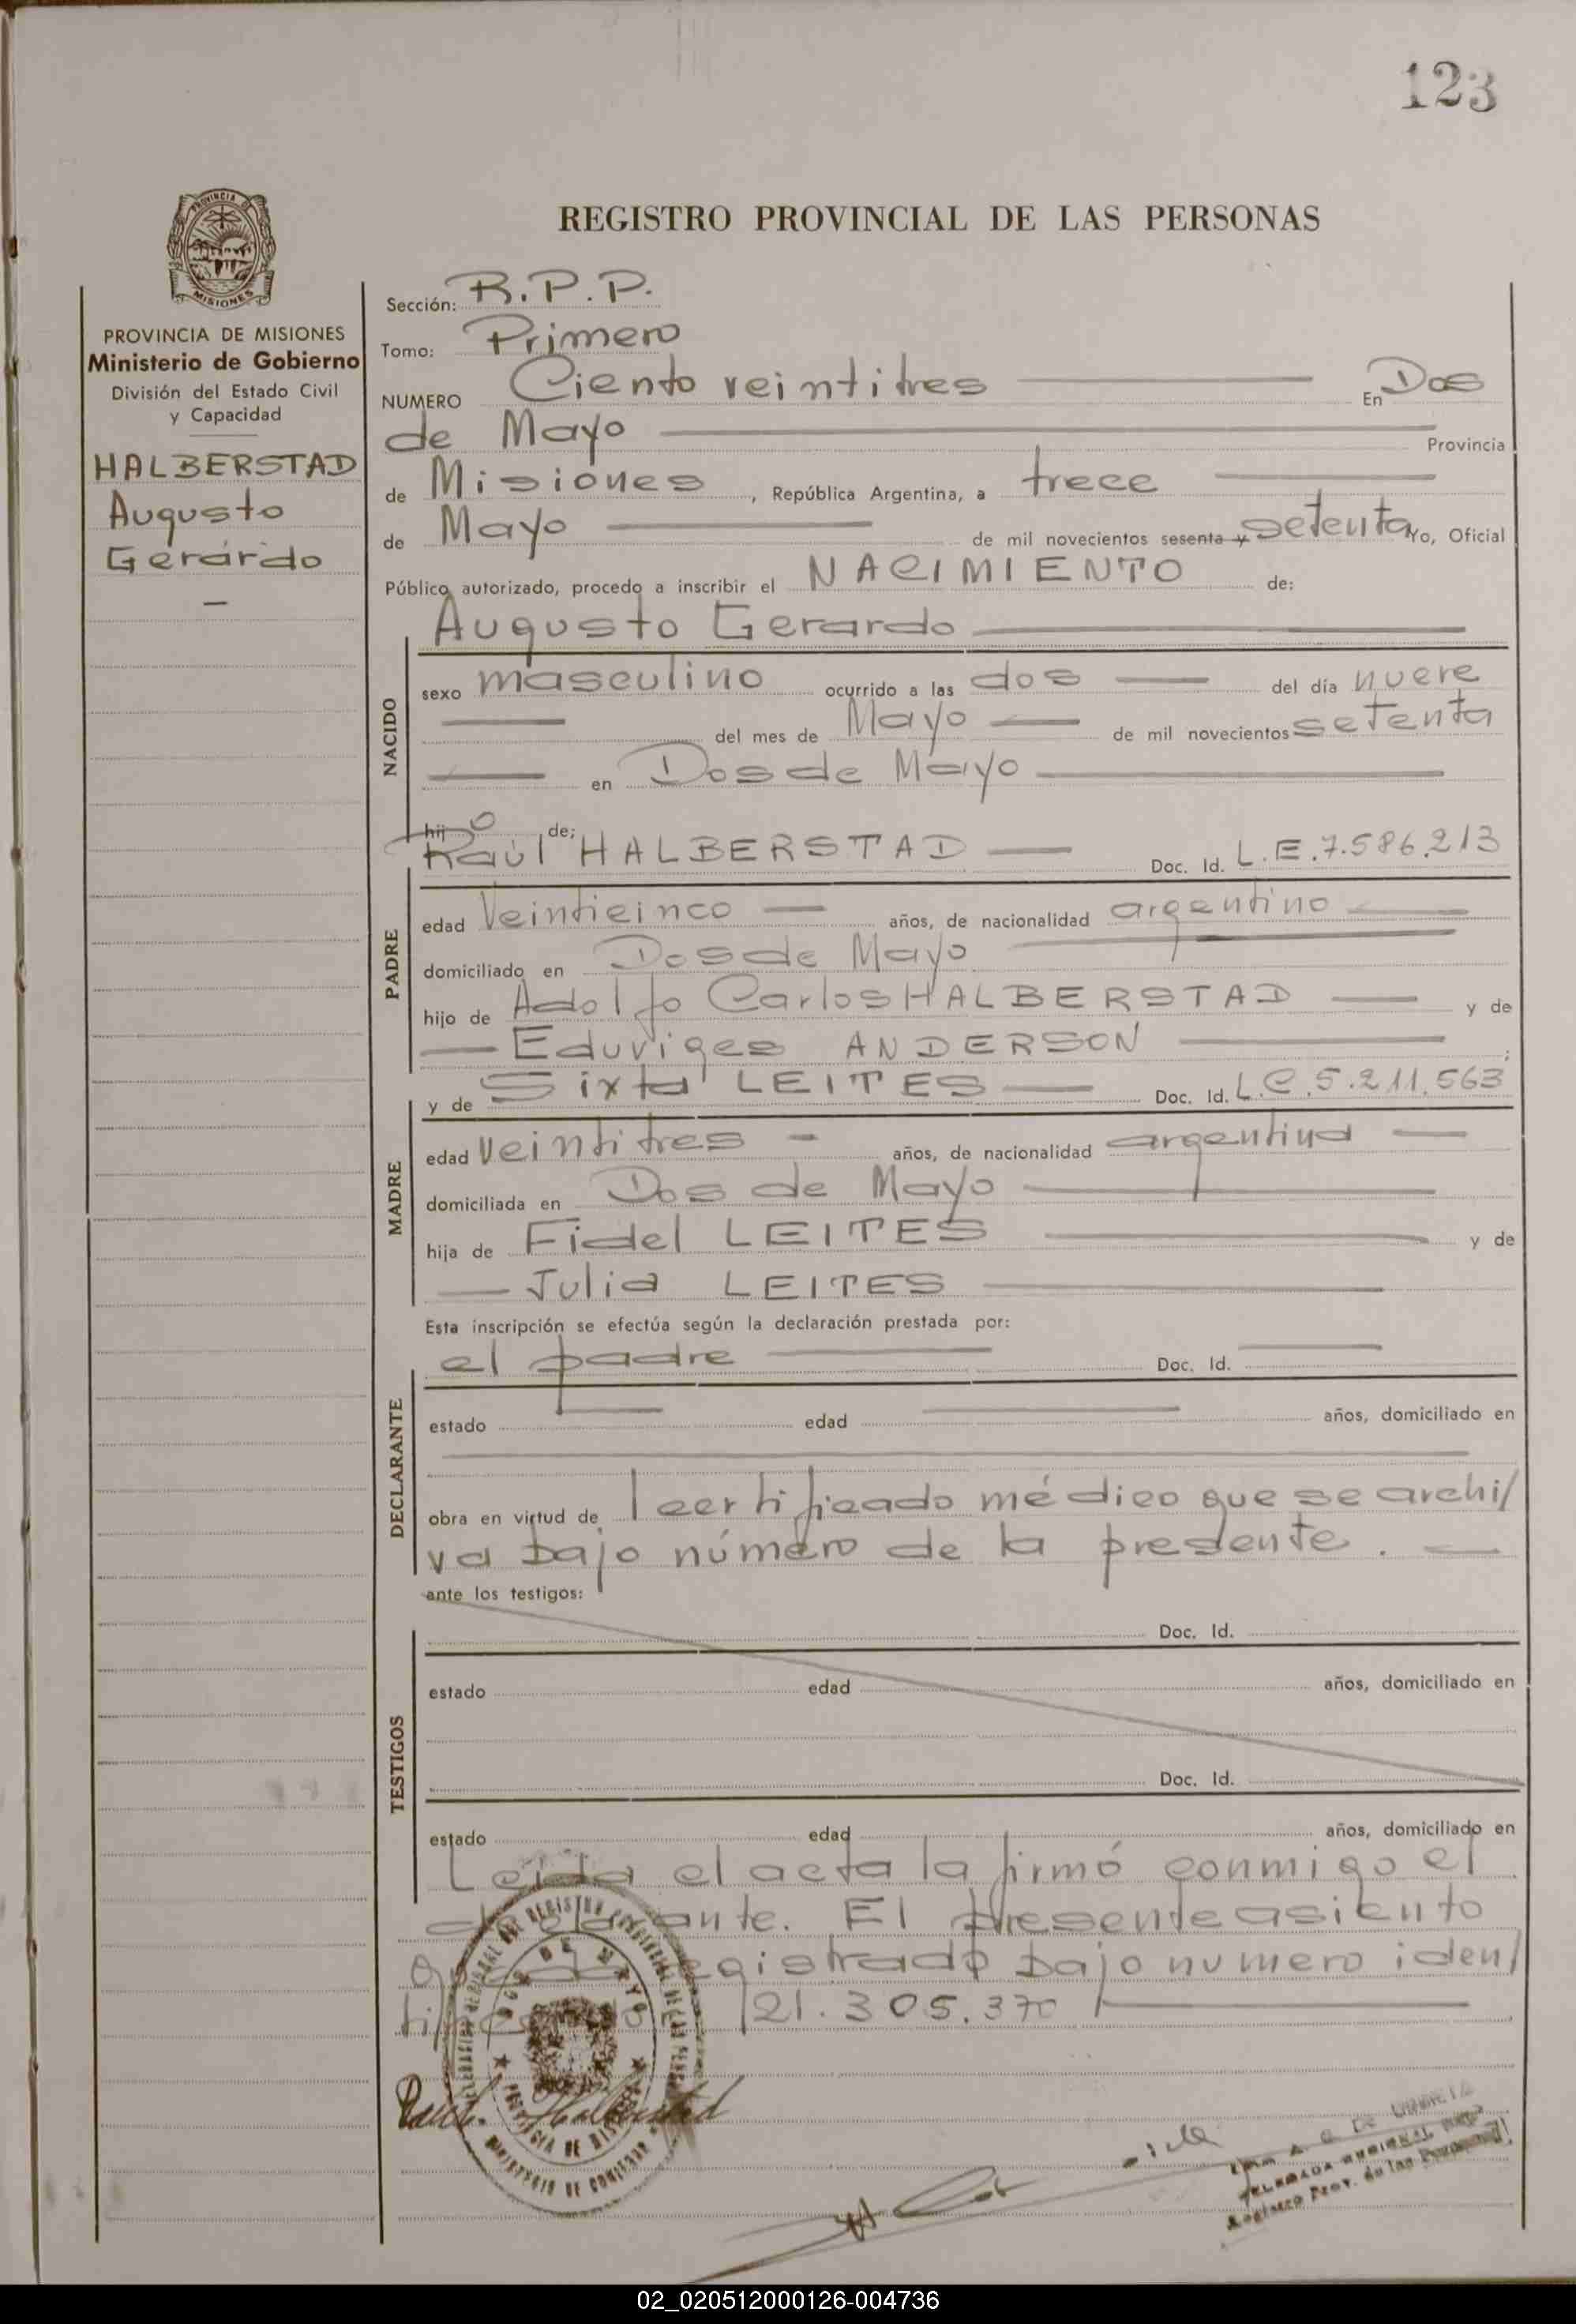 123
REGISTRO PROVINCIAL DE LAS PERSONAS
PROVINCIA DE
MISIONES
PROVINCIA DE MISIONES
Ministerio de Gobierno
División del Estado Civil
y Capacidad
HALBERSTAD
Augusto
Gerardo
—
Sección: R.P.P.
Tomo: Primero
NUMERO Ciento veintitres — En Dos
de Mayo — Provincia
de Misiones , República Argentina, a trece —
de Mayo — de mil novecientos sesenta y setenta Yo, Oficial
Público autorizado, procedo a inscribir el NACIMIENTO de:
Augusto Gerardo —
NACIDO
sexo masculino ocurrido a las dos — del día nueve
— del mes de Mayo — de mil novecientos setenta
— en Dos de Mayo —
hijo de:
Raúl HALBERSTAD — Doc. Id. L.E.7.586.213
PADRE
edad Veinticinco — años, de nacionalidad argentino —
domiciliado en Dos de Mayo —
hijo de Adolfo Carlos HALBERSTAD — y de
— Eduviges ANDERSON — ;
y de Sixta LEITES — Doc. Id. L.C.5.211.563
MADRE
edad Veintitres — años, de nacionalidad argentina —
domiciliada en Dos de Mayo —
hija de Fidel LEITES — y de
— Julia LEITES —
Esta inscripción se efectúa según la declaración prestada por:
el padre — Doc. Id. —
DECLARANTE
estado — edad — años, domiciliado en
—
obra en virtud de l certificado médico que se archi/
va bajo número de la presente. —
ante los testigos:
Doc. Id.
TESTIGOS
estado edad años, domiciliado en
Doc. Id.
estado edad años, domiciliado en
Leida el acta la firmó conmigo el
declarante. El presente asiento
queda registrado bajo numero iden/
tificatorio /21.305.370/ —
DOS DE MAYO
PROVINCIA DE MISIONES
MINISTERIO DE GOBIERNO
Raul Halberstad
Registro Prov. de las Personas
02_020512000126-004736